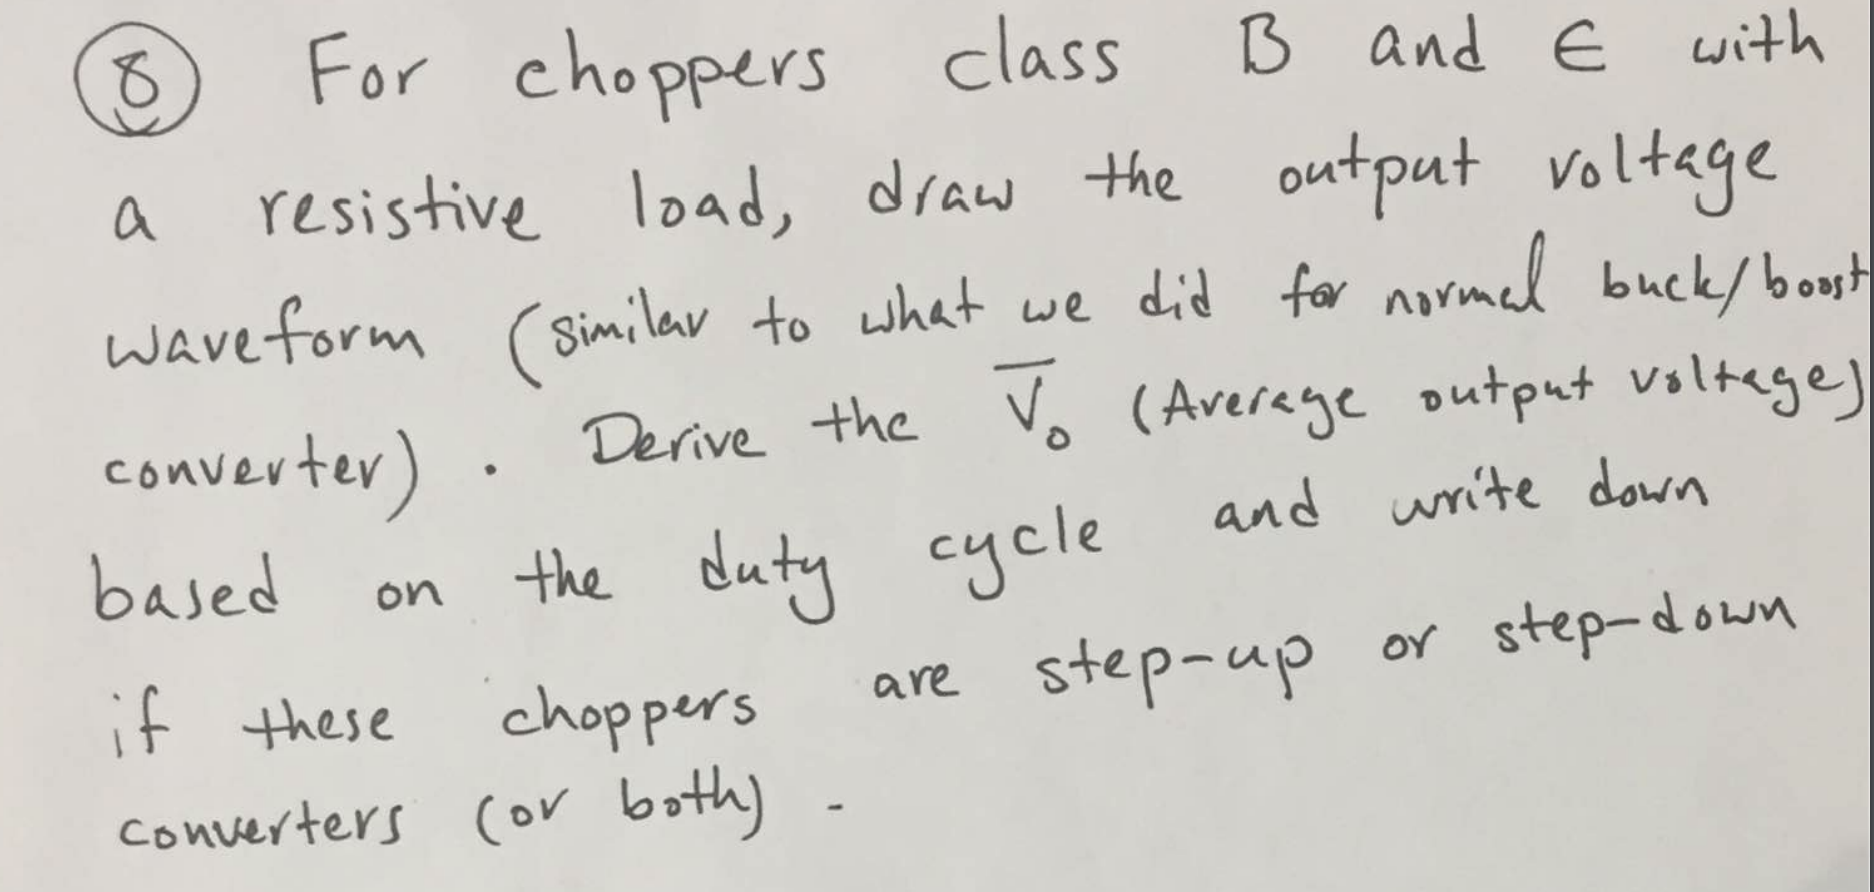 ⑧ For choppers class B and E with
a resistive load, draw the output voltage
waveform (similar to what we did for normal buck/boost
converter). Derive the V̅₀ (Average output voltage)
based on the duty cycle and write down
if these choppers are step-up or step-down
converters (or both).